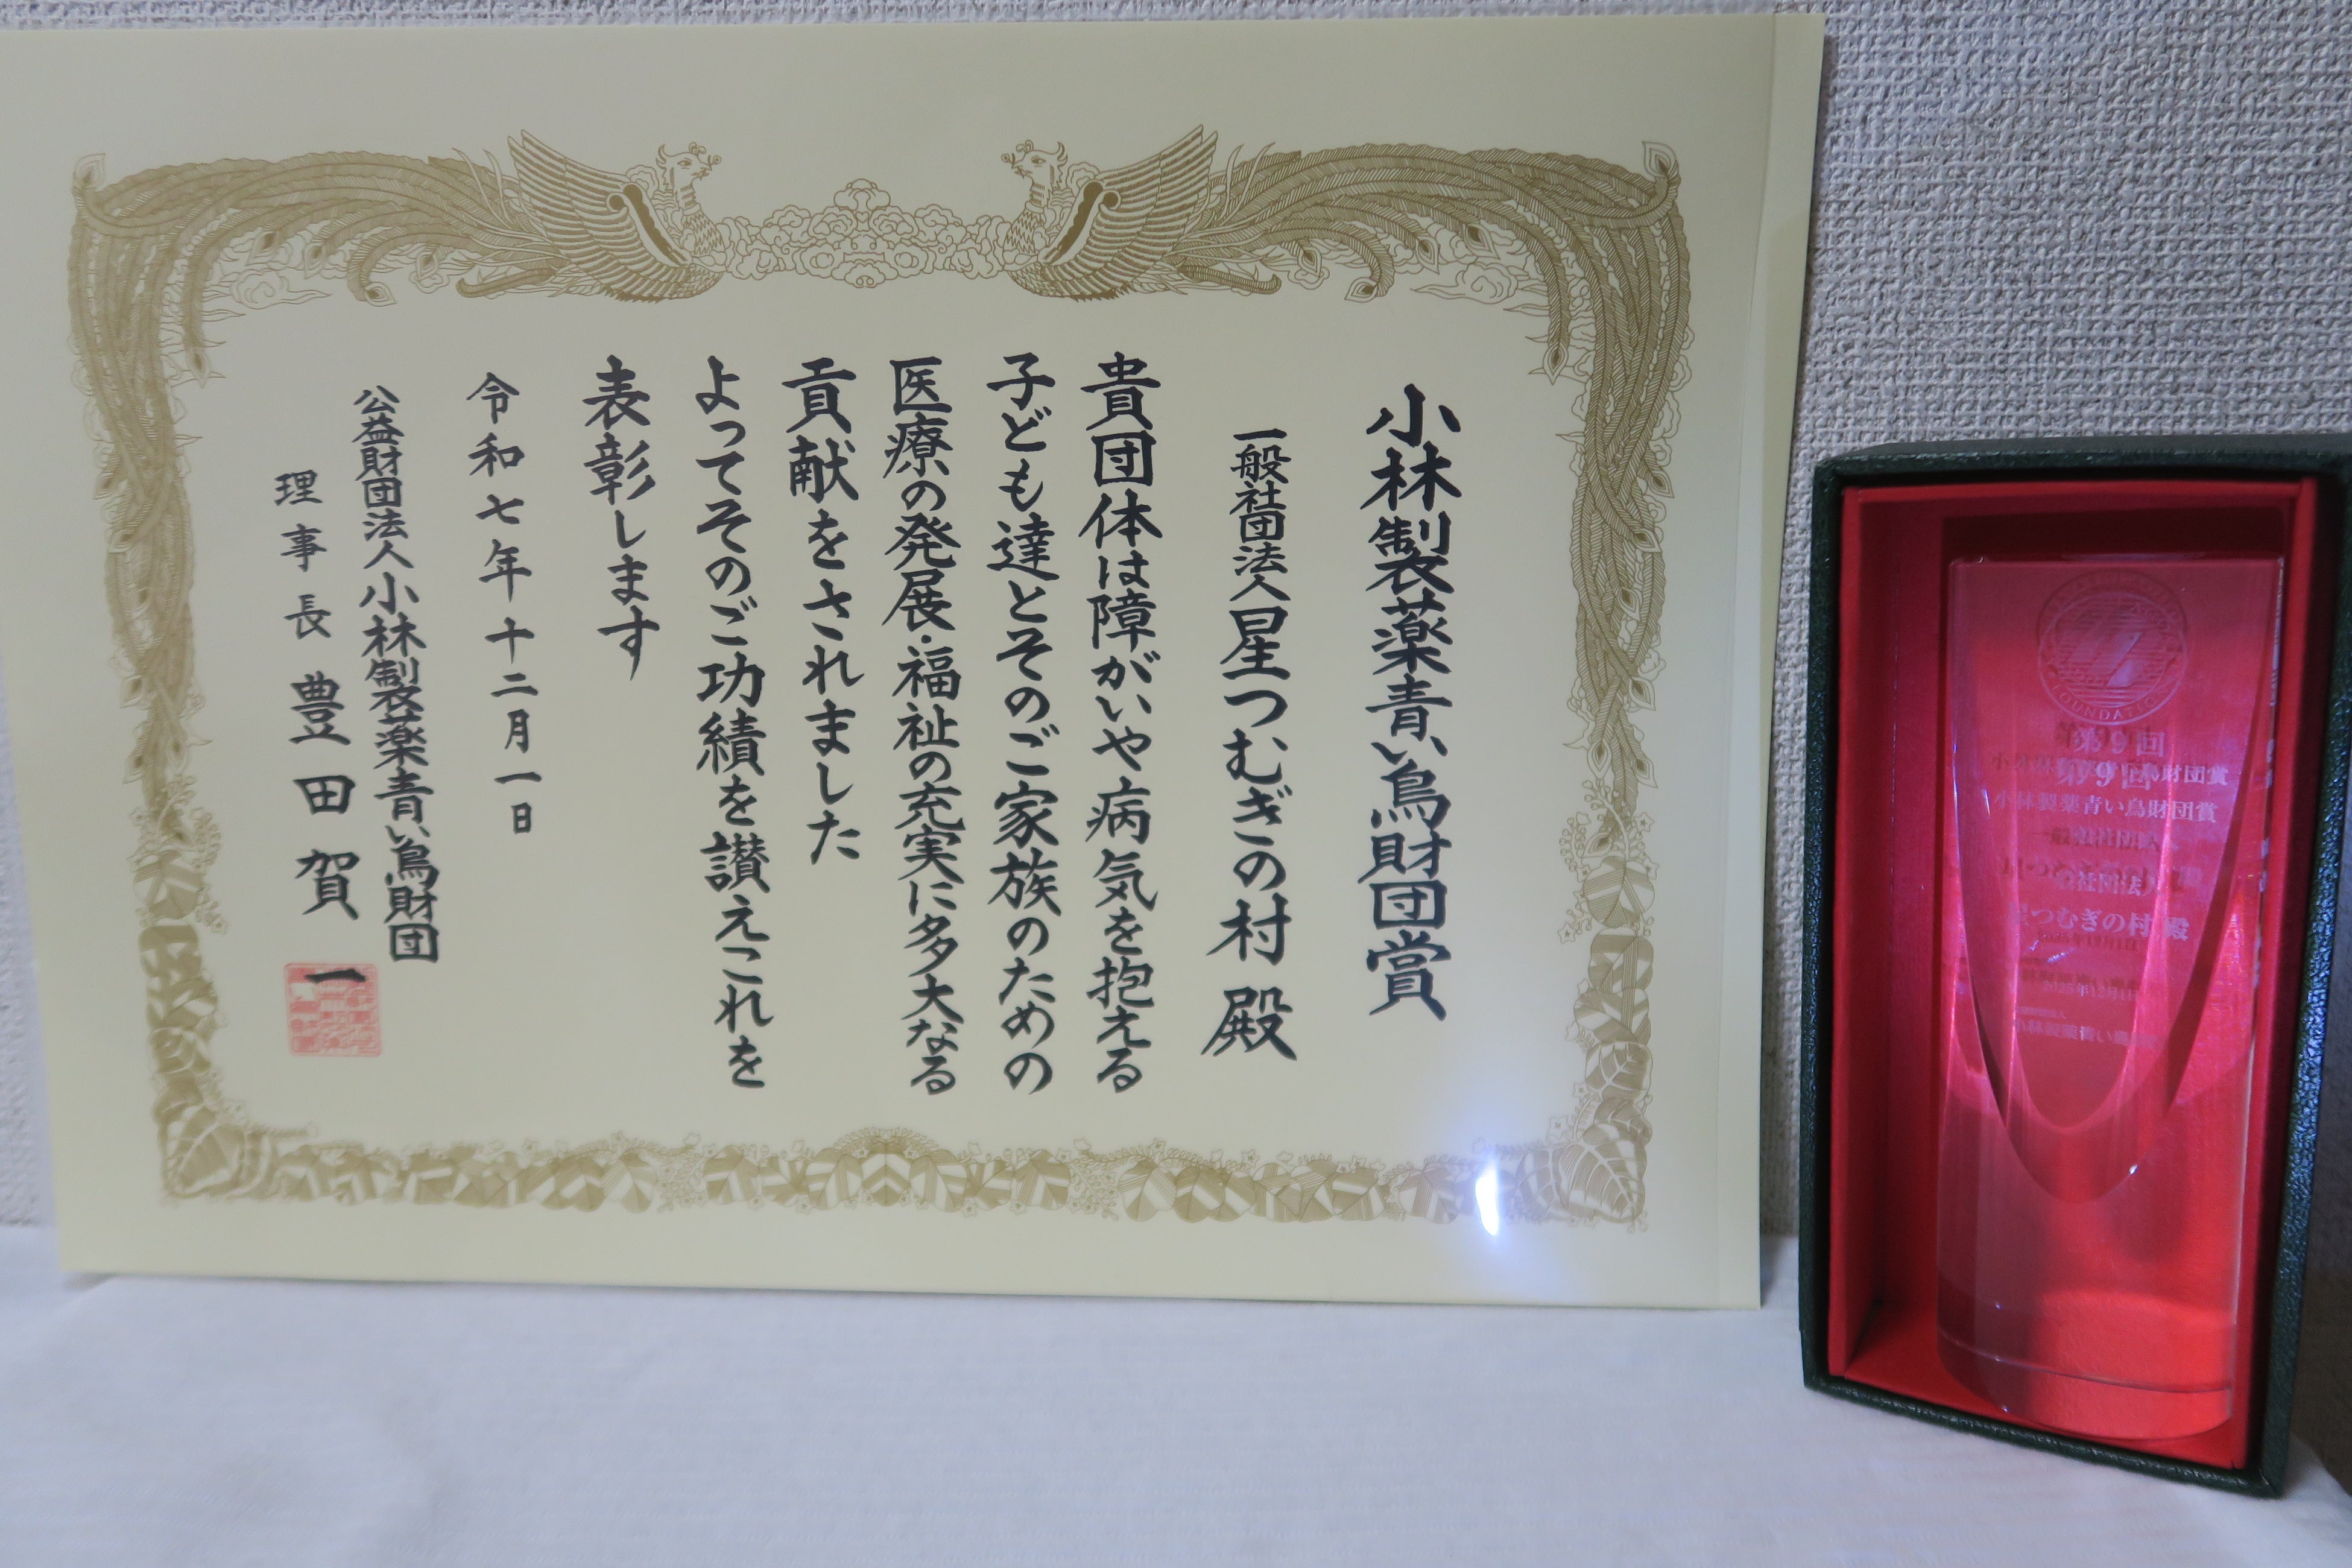 小林製薬青い鳥財団賞
一般社団法人星つむぎの村 殿
貴団体は障がいや病気を抱える
子ども達とそのご家族のための
医療の発展・福祉の充実に多大なる
貢献をされました
よってそのご功績を讃えこれを
表彰します
令和七年十二月一日
公益財団法人小林製薬青い鳥財団
理事長 豊田賀一
FOUNDATION
第9回
小林製薬青い鳥財団賞
一般社団法人
星つむぎの村 殿
2025年12月1日
小林製薬青い鳥財団